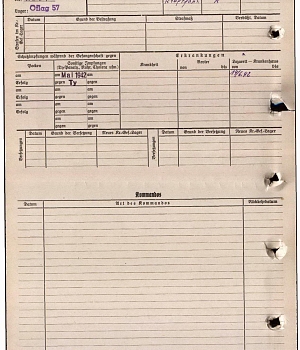 Lager: Oflag 57
Datum Grund der Bestrafung Strafmaß Verbüßt, Datum
Schutzimpfungen während der Gefangenschaft gegen
Erkrankungen
Pocken
Sonstige Impfungen
(Ty. Paratyph., Ruhr, Cholera usw.)
Krankheit
Revier
von bis
Lazarett — Krankenhaus
von bis
am
am Mai 1942
Erfolg
gegen Ty
am
am
Erfolg
gegen
am
am
Erfolg
gegen
am
am
Erfolg
gegen
Versetzungen
Datum Grund der Versetzung Neues Kr.-Gef.-Lager
Versetzungen
Datum Grund der Versetzung Neues Kr.-Gef.-Lager
Kommandos
Datum Art des Kommandos Rückkehrdatum